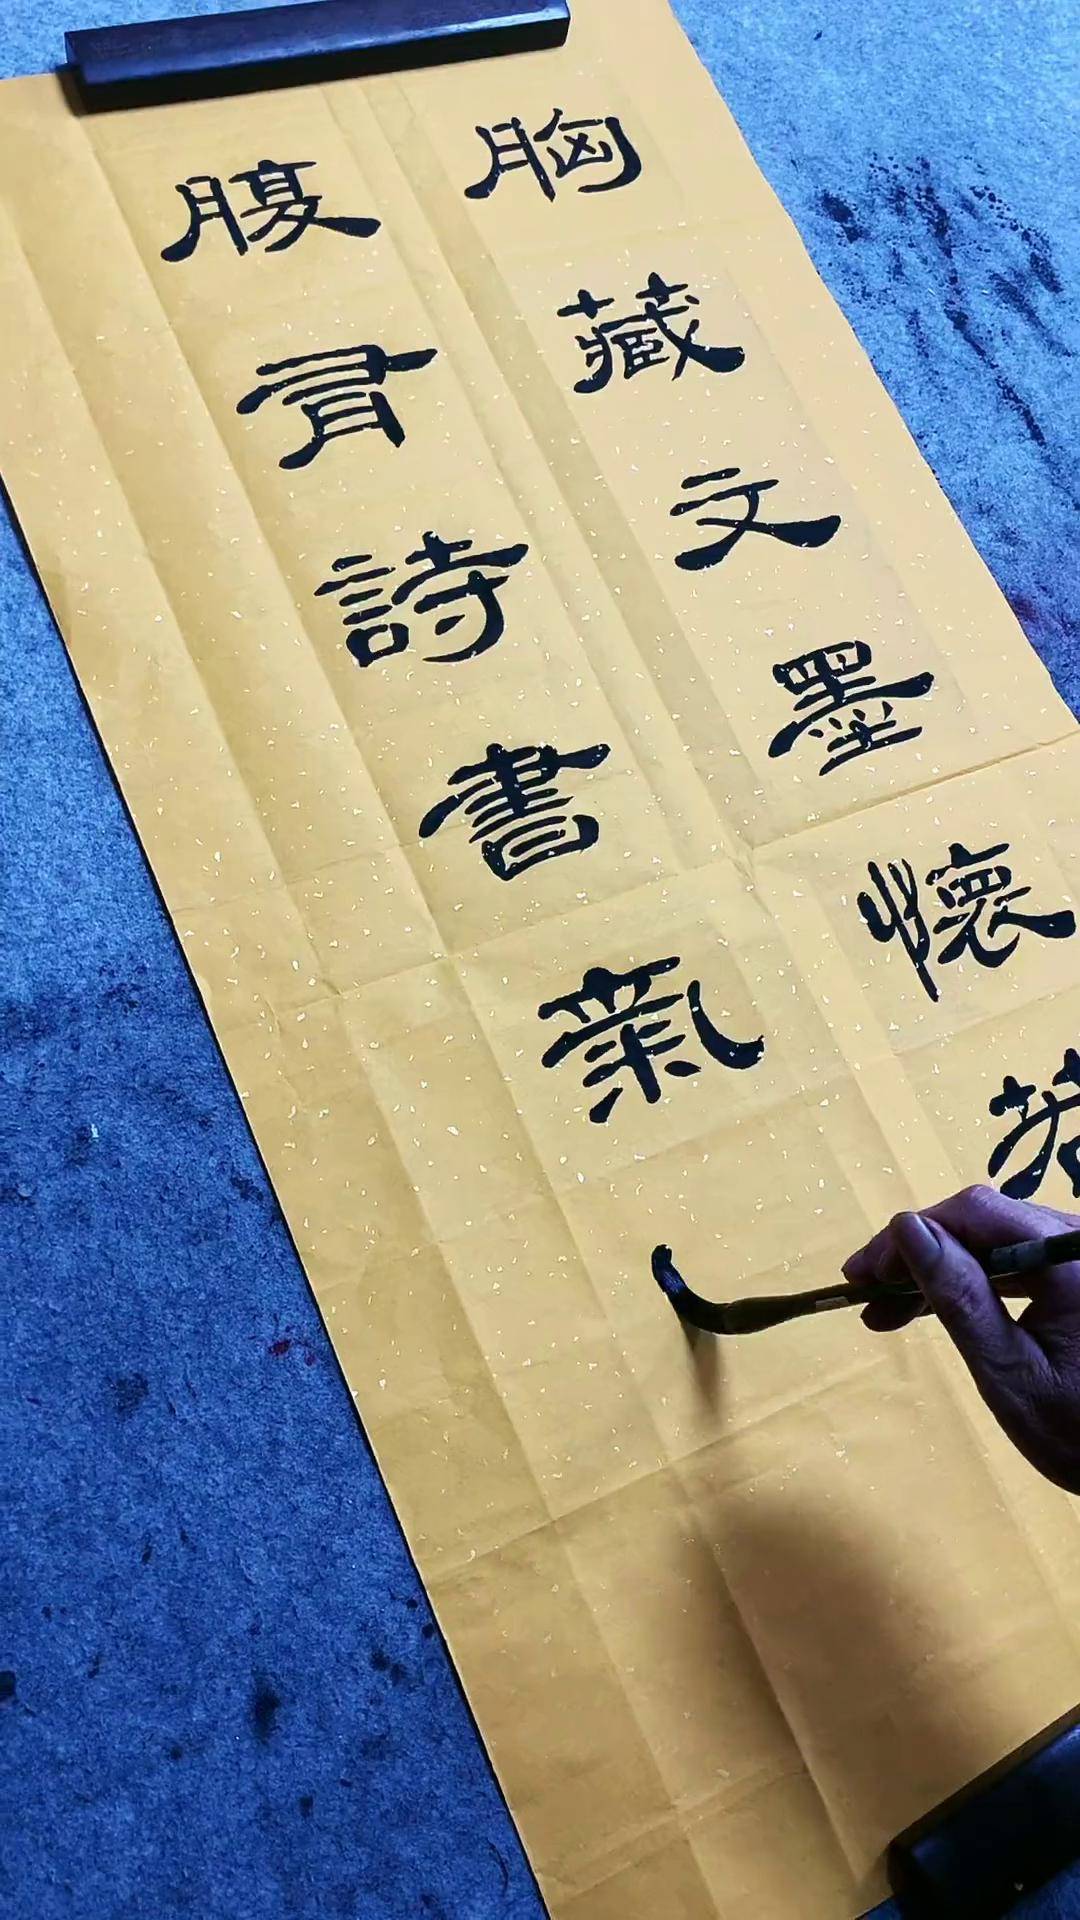 胸藏文墨懷若
腹有詩書氣